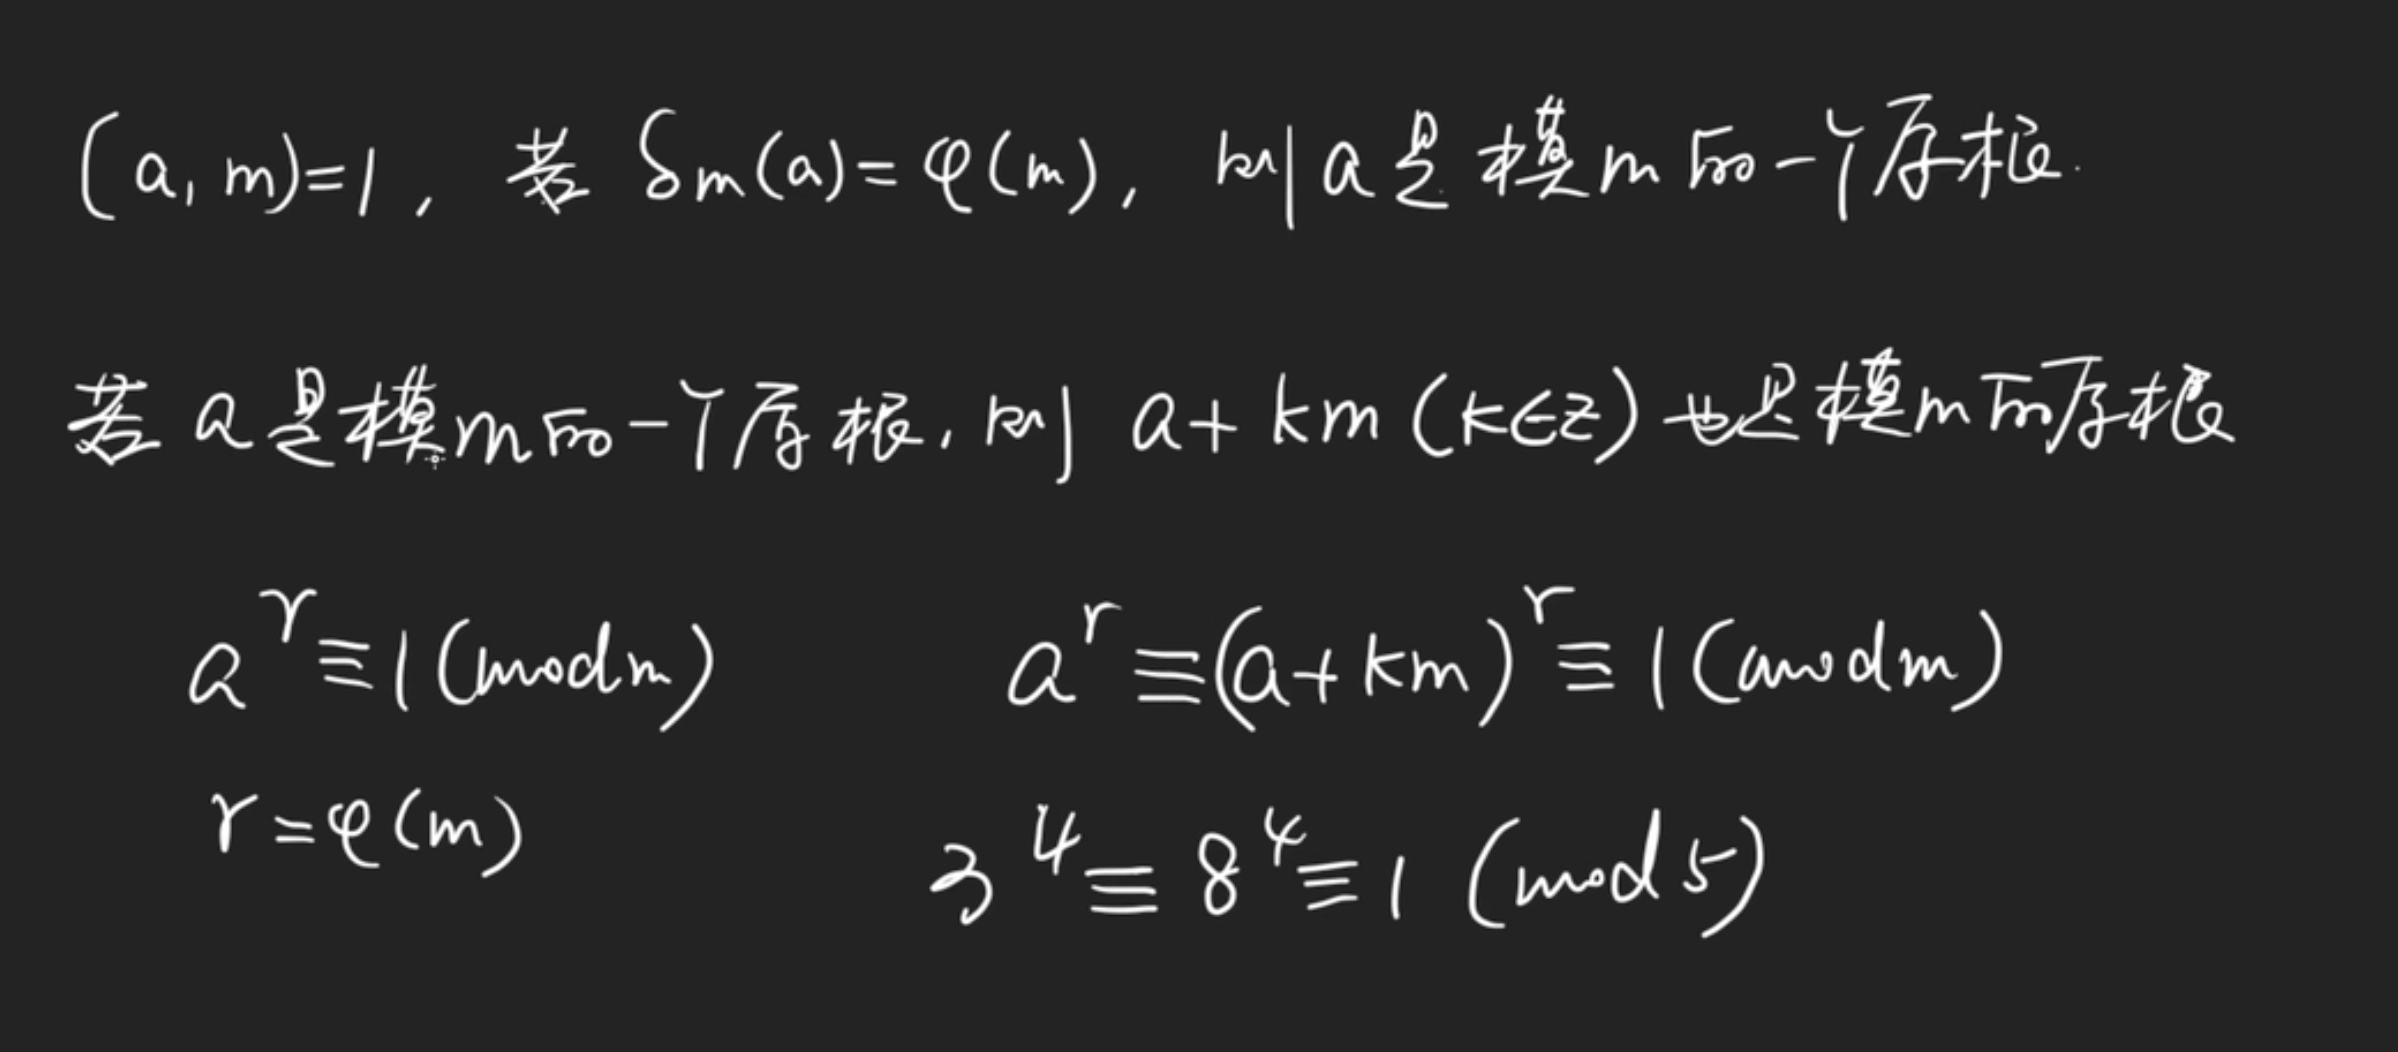 (a, m)=1, 若 δm(a)=φ(m), 则 a是模m的一个原根.
若 a是模m的一个原根, 则 a+km(k∈Z)也是模m的原根
a^r≡1(modm) a^r≡(a+km)^r≡1(modm)
r=φ(m) 3^4≡8^4≡1 (mod 5)